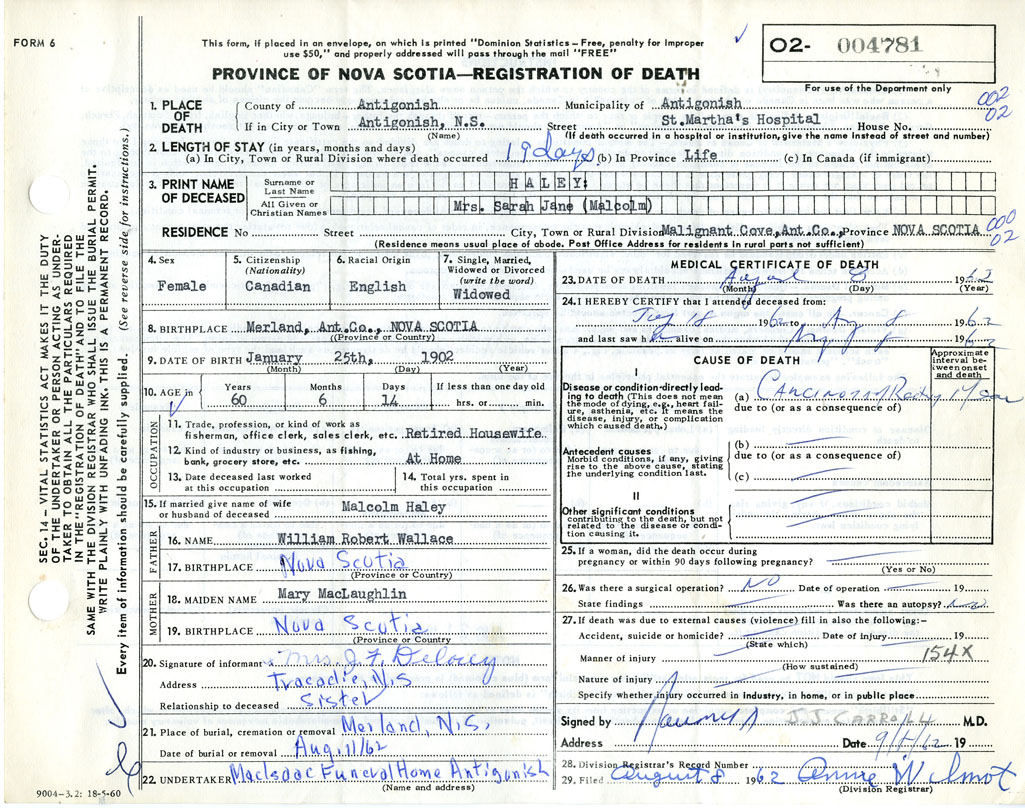 FORM 6
This form, if placed in an envelope, on which is printed "Dominion Statistics – Free, penalty for improper
use $50," and properly addressed will pass through the mail "FREE"
PROVINCE OF NOVA SCOTIA—REGISTRATION OF DEATH
O2- 004781
For use of the Department only
SEC. 14 – VITAL STATISTICS ACT MAKES IT THE DUTY
OF THE UNDERTAKER OR PERSON ACTING AS UNDER-
TAKER TO OBTAIN ALL THE PARTICULARS REQUIRED
IN THE "REGISTRATION OF DEATH" AND TO FILE THE
SAME WITH THE DIVISION REGISTRAR WHO SHALL ISSUE THE BURIAL PERMIT.
WRITE PLAINLY WITH UNFADING INK. THIS IS A PERMANENT RECORD.
Every item of information should be carefully supplied. (See reverse side for instructions.)
1. PLACE OF DEATH
County of Antigonish Municipality of Antigonish
002
02
If in City or Town Antigonish, N.S. Street St.Martha's Hospital House No.
(Name) (If death occurred in a hospital or institution, give the name instead of street and number)
2. LENGTH OF STAY (in years, months and days)
(a) In City, Town or Rural Division where death occurred 19 days (b) In Province Life (c) In Canada (if immigrant)
3. PRINT NAME OF DECEASED
Surname or Last Name HALEY:
All Given or Christian Names Mrs. Sarah Jane (Malcolm)
RESIDENCE No Street City, Town or Rural Division Malignant Cove,Ant.Co., Province NOVA SCOTIA
000
02
(Residence means usual place of abode. Post Office Address for residents in rural parts not sufficient)
4. Sex
Female
5. Citizenship (Nationality)
Canadian
6. Racial Origin
English
7. Single, Married, Widowed or Divorced (write the word)
Widowed
8. BIRTHPLACE Merland, Ant.Co., NOVA SCOTIA
(Province or Country)
9. DATE OF BIRTH January 25th, 1902
(Month) (Day) (Year)
10. AGE in Years 60 Months 6 Days 14 If less than one day old hrs. or min.
OCCUPATION
11. Trade, profession, or kind of work as
fisherman, office clerk, sales clerk, etc. Retired Housewife
12. Kind of industry or business, as fishing,
bank, grocery store, etc. At Home
13. Date deceased last worked at this occupation
14. Total yrs. spent in this occupation
15. If married give name of wife
or husband of deceased Malcolm Haley
FATHER
16. NAME William Robert Wallace
17. BIRTHPLACE Nova Scotia
(Province or Country)
MOTHER
18. MAIDEN NAME Mary MacLaughlin
19. BIRTHPLACE Nova Scotia
(Province or Country)
20. Signature of informant Mrs J F
Address Tracadie, N.S
Relationship to deceased Sister
21. Place of burial, cremation or removal Merland, N.S.
Date of burial or removal Aug. 11/62
22. UNDERTAKER MacIsaac Funeral Home Antigonish
(Name and address)
9004–3.2: 18-5-60
MEDICAL CERTIFICATE OF DEATH
23. DATE OF DEATH August 8 1962
(Month) (Day) (Year)
24. I HEREBY CERTIFY that I attended deceased from:
18 1962 to Aug 8 1962
and last saw h alive on Aug 8 1962
CAUSE OF DEATH
Approximate interval between onset and death
I
Disease or condition directly lead-
ing to death (This does not mean
the mode of dying, e.g., heart fail-
ure, asthenia, etc. It means the
disease, injury, or complication
which caused death.)
(a) Carcinoma
due to (or as a consequence of)
Antecedent causes
Morbid conditions, if any, giving
rise to the above cause, stating
the underlying condition last.
(b)
due to (or as a consequence of)
(c)
II
Other significant conditions
contributing to the death, but not
related to the disease or condi-
tion causing it.
25. If a woman, did the death occur during
pregnancy or within 90 days following pregnancy?
(Yes or No)
26. Was there a surgical operation? NO Date of operation 19
State findings Was there an autopsy?
27. If death was due to external causes (violence) fill in also the following:-
Accident, suicide or homicide? Date of injury 19
(State which)
154X
Manner of injury
(How sustained)
Nature of injury
Specify whether injury occurred in industry, in home, or in public place
Signed by J.J. CARROLL M.D.
Address Date 19
28. Division Registrar's Record Number
29. Filed August 8 1962 Annie Wilmot
(Division Registrar)